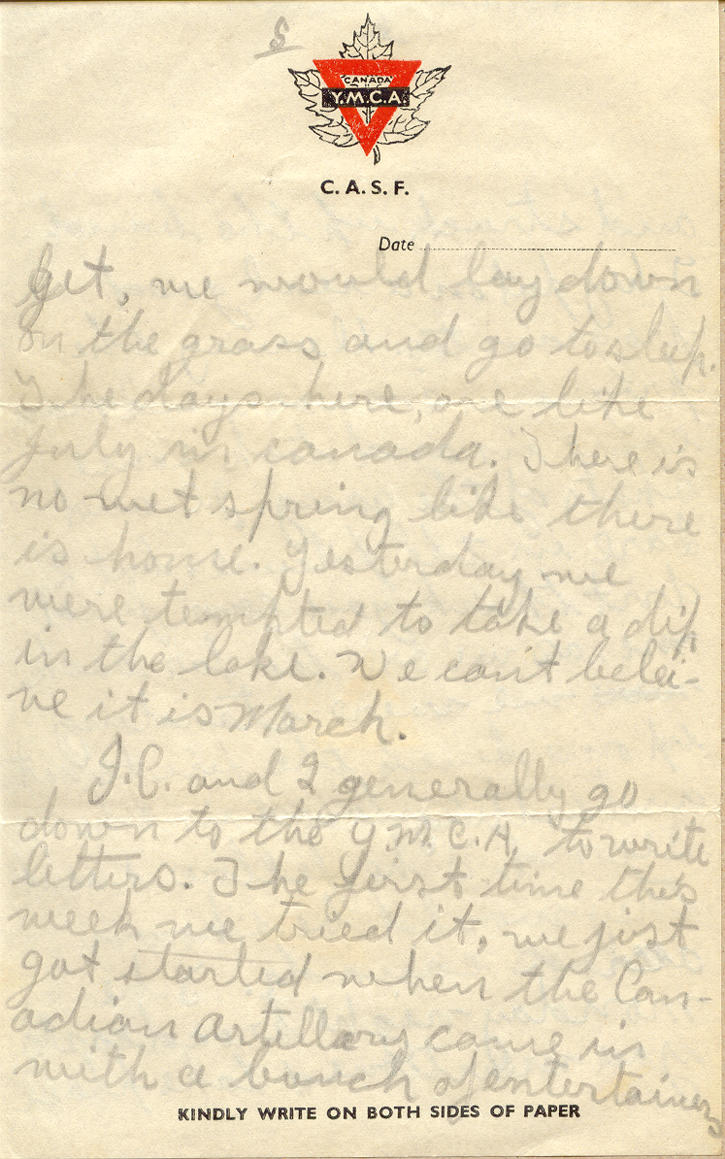 5
CANADA
Y.M.C.A.
C. A. S. F.
Date
get, we would lay down
on the grass and go to sleep.
The days here, are like
July in canada. There is
no wet spring like there
is home. Yesterday we
were tempted to take a dip
in the lake. We can't belei-
ve it is March.
J.C. and I generally go
down to the Y.M.C.A. to write
letters. The first time this
week we tried it, we just
got started when the Can-
adian Artillary came in
with a bunch of entertainers
KINDLY WRITE ON BOTH SIDES OF PAPER